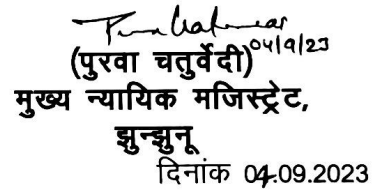 04/9/23
(पुरवा चतुर्वेदी)
मुख्य न्यायिक मजिस्ट्रेट,
झुन्झुनू
दिनांक 04.09.2023